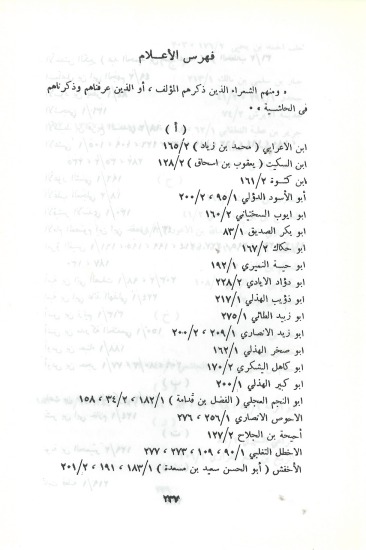 فهرس الأعلام
« ومنهم الشعراء الذين ذكرهم المؤلف ، أو الذين عرفناهم وذكرناهم
في الحاشية »
( أ )
ابن الاعرابي ( محمد بن زياد ) ١٦٥/٢
ابن السكيت ( يعقوب بن اسحاق ) ١٢٨/٢
ابن كثوة ١٦١/٢
أبو الأسود الدؤلي ٩٥/١ ، ٢٠٠/٢
ابو ايوب السختياني ١٦٠/٢
ابو بكر الصديق ٨٣/١
ابو حكاك ١٦٧/٢
ابو حية النميري ١٩٢/١
ابو دؤاد الايادي ٢٢٨/٢
ابو ذؤيب الهذلي ٢١٧/١
ابو زبيد الطائي ٢٧٥/١
ابو زيد الانصاري ٢٠٩/١ ، ٢٠٠/٢
ابو صخر الهذلي ١٦٢/١
ابو كاهل اليشكري ١٧٠/٢
ابو كبير الهذلي ٢٠٠/١
ابو النجم العجلي ( الفضل بن قدامة ) ١٨٢/١ ، ٣٤/٢ ، ١٥٨
الاحوص الانصاري ٢٥٦/١ ، ٢٧٦
أحيحة بن الجلاح ١٢٧/٢
الاخطل التغلبي ٩٠/١ ، ١٠٩ ، ٢٧٣ ، ٢٧٧
الأخفش ( أبو الحسن سعيد بن مسعدة ) ١٨٣/١ ، ١٩١ ، ٢٠١/٢
٢٣٧